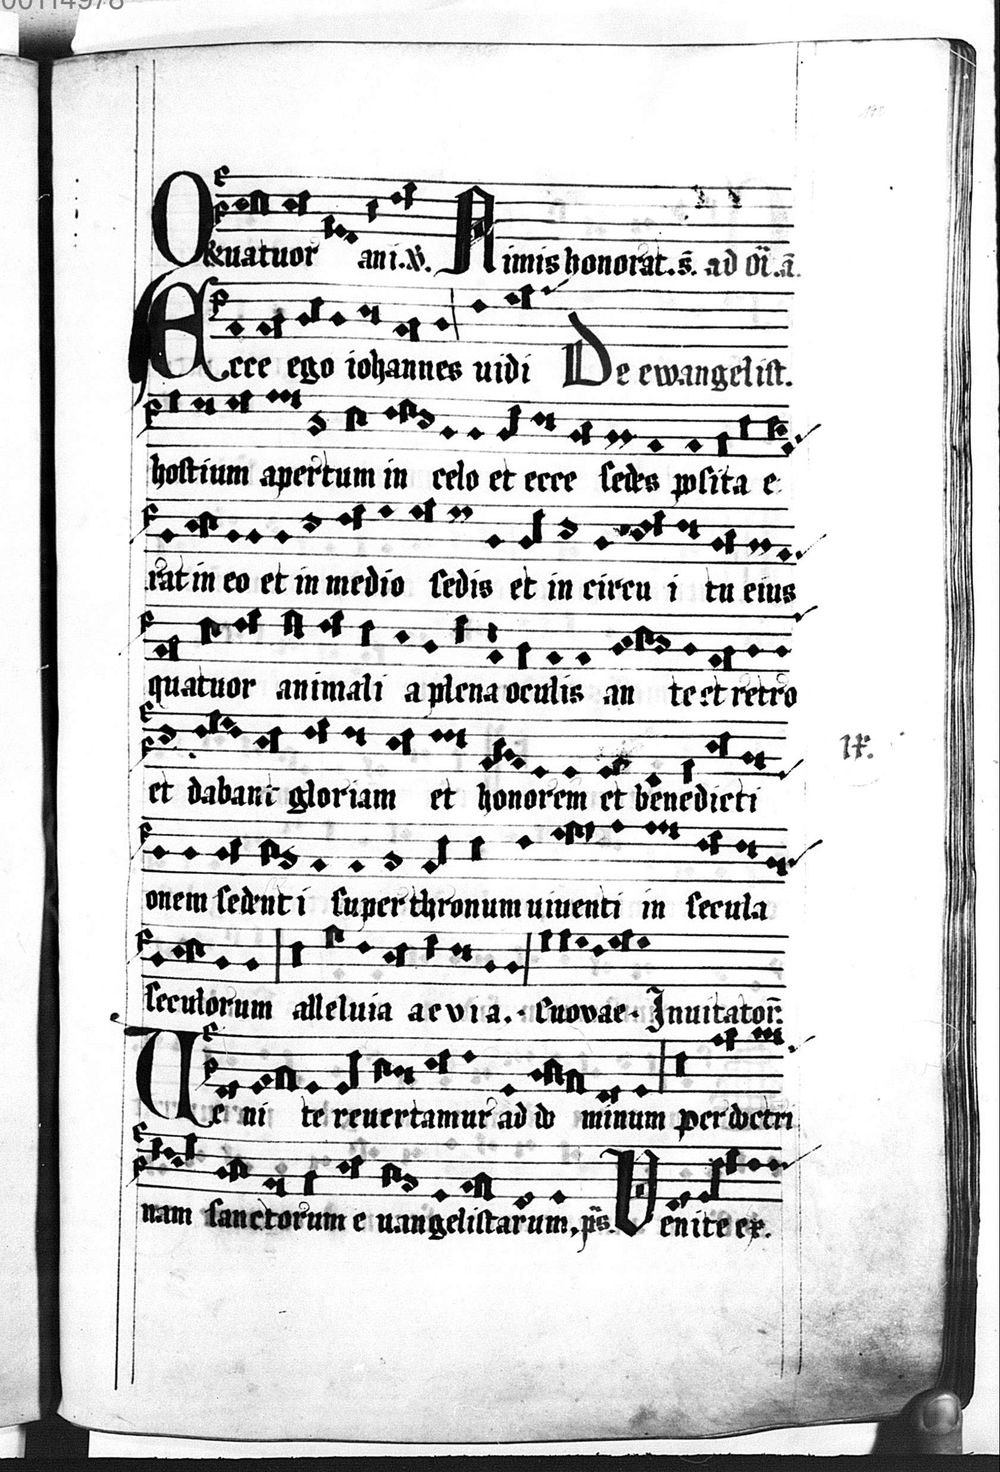 00114978
Quatuor ani.V. Nimis honorat. s. ad Oi. a.
Ecce ego iohannes uidi De ewangelist.
hostium apertum in celo et ecce sedes posita e
rat in eo et in medio sedis et in circu i tu eius
quatuor animali a plena oculis an te et retro
et dabant gloriam et honorem et benedicti
IX.
onem sedenti super thronum uiuenti in secula
seculorum alleluia aevia. Euovae. Inuitator.
Ue ni te reuertamur ad do minum per doctri
nam sanctorum e uangelistarum. ps. Venite ex.